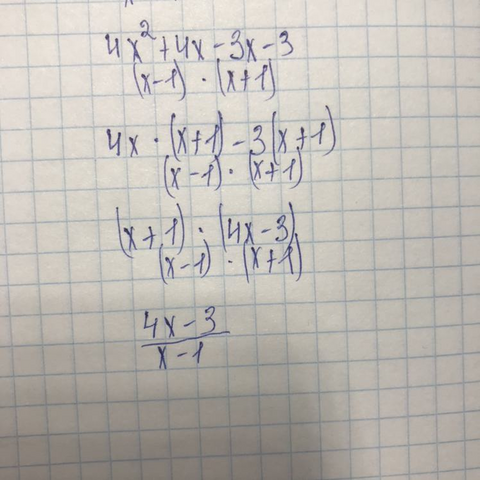 4x²+4x-3x-3
(x-1) · (x+1)
4x · (x+1) - 3(x+1)
(x-1) · (x+1)
(x+1) · (4x-3)
(x-1) · (x+1)
4x-3
x-1